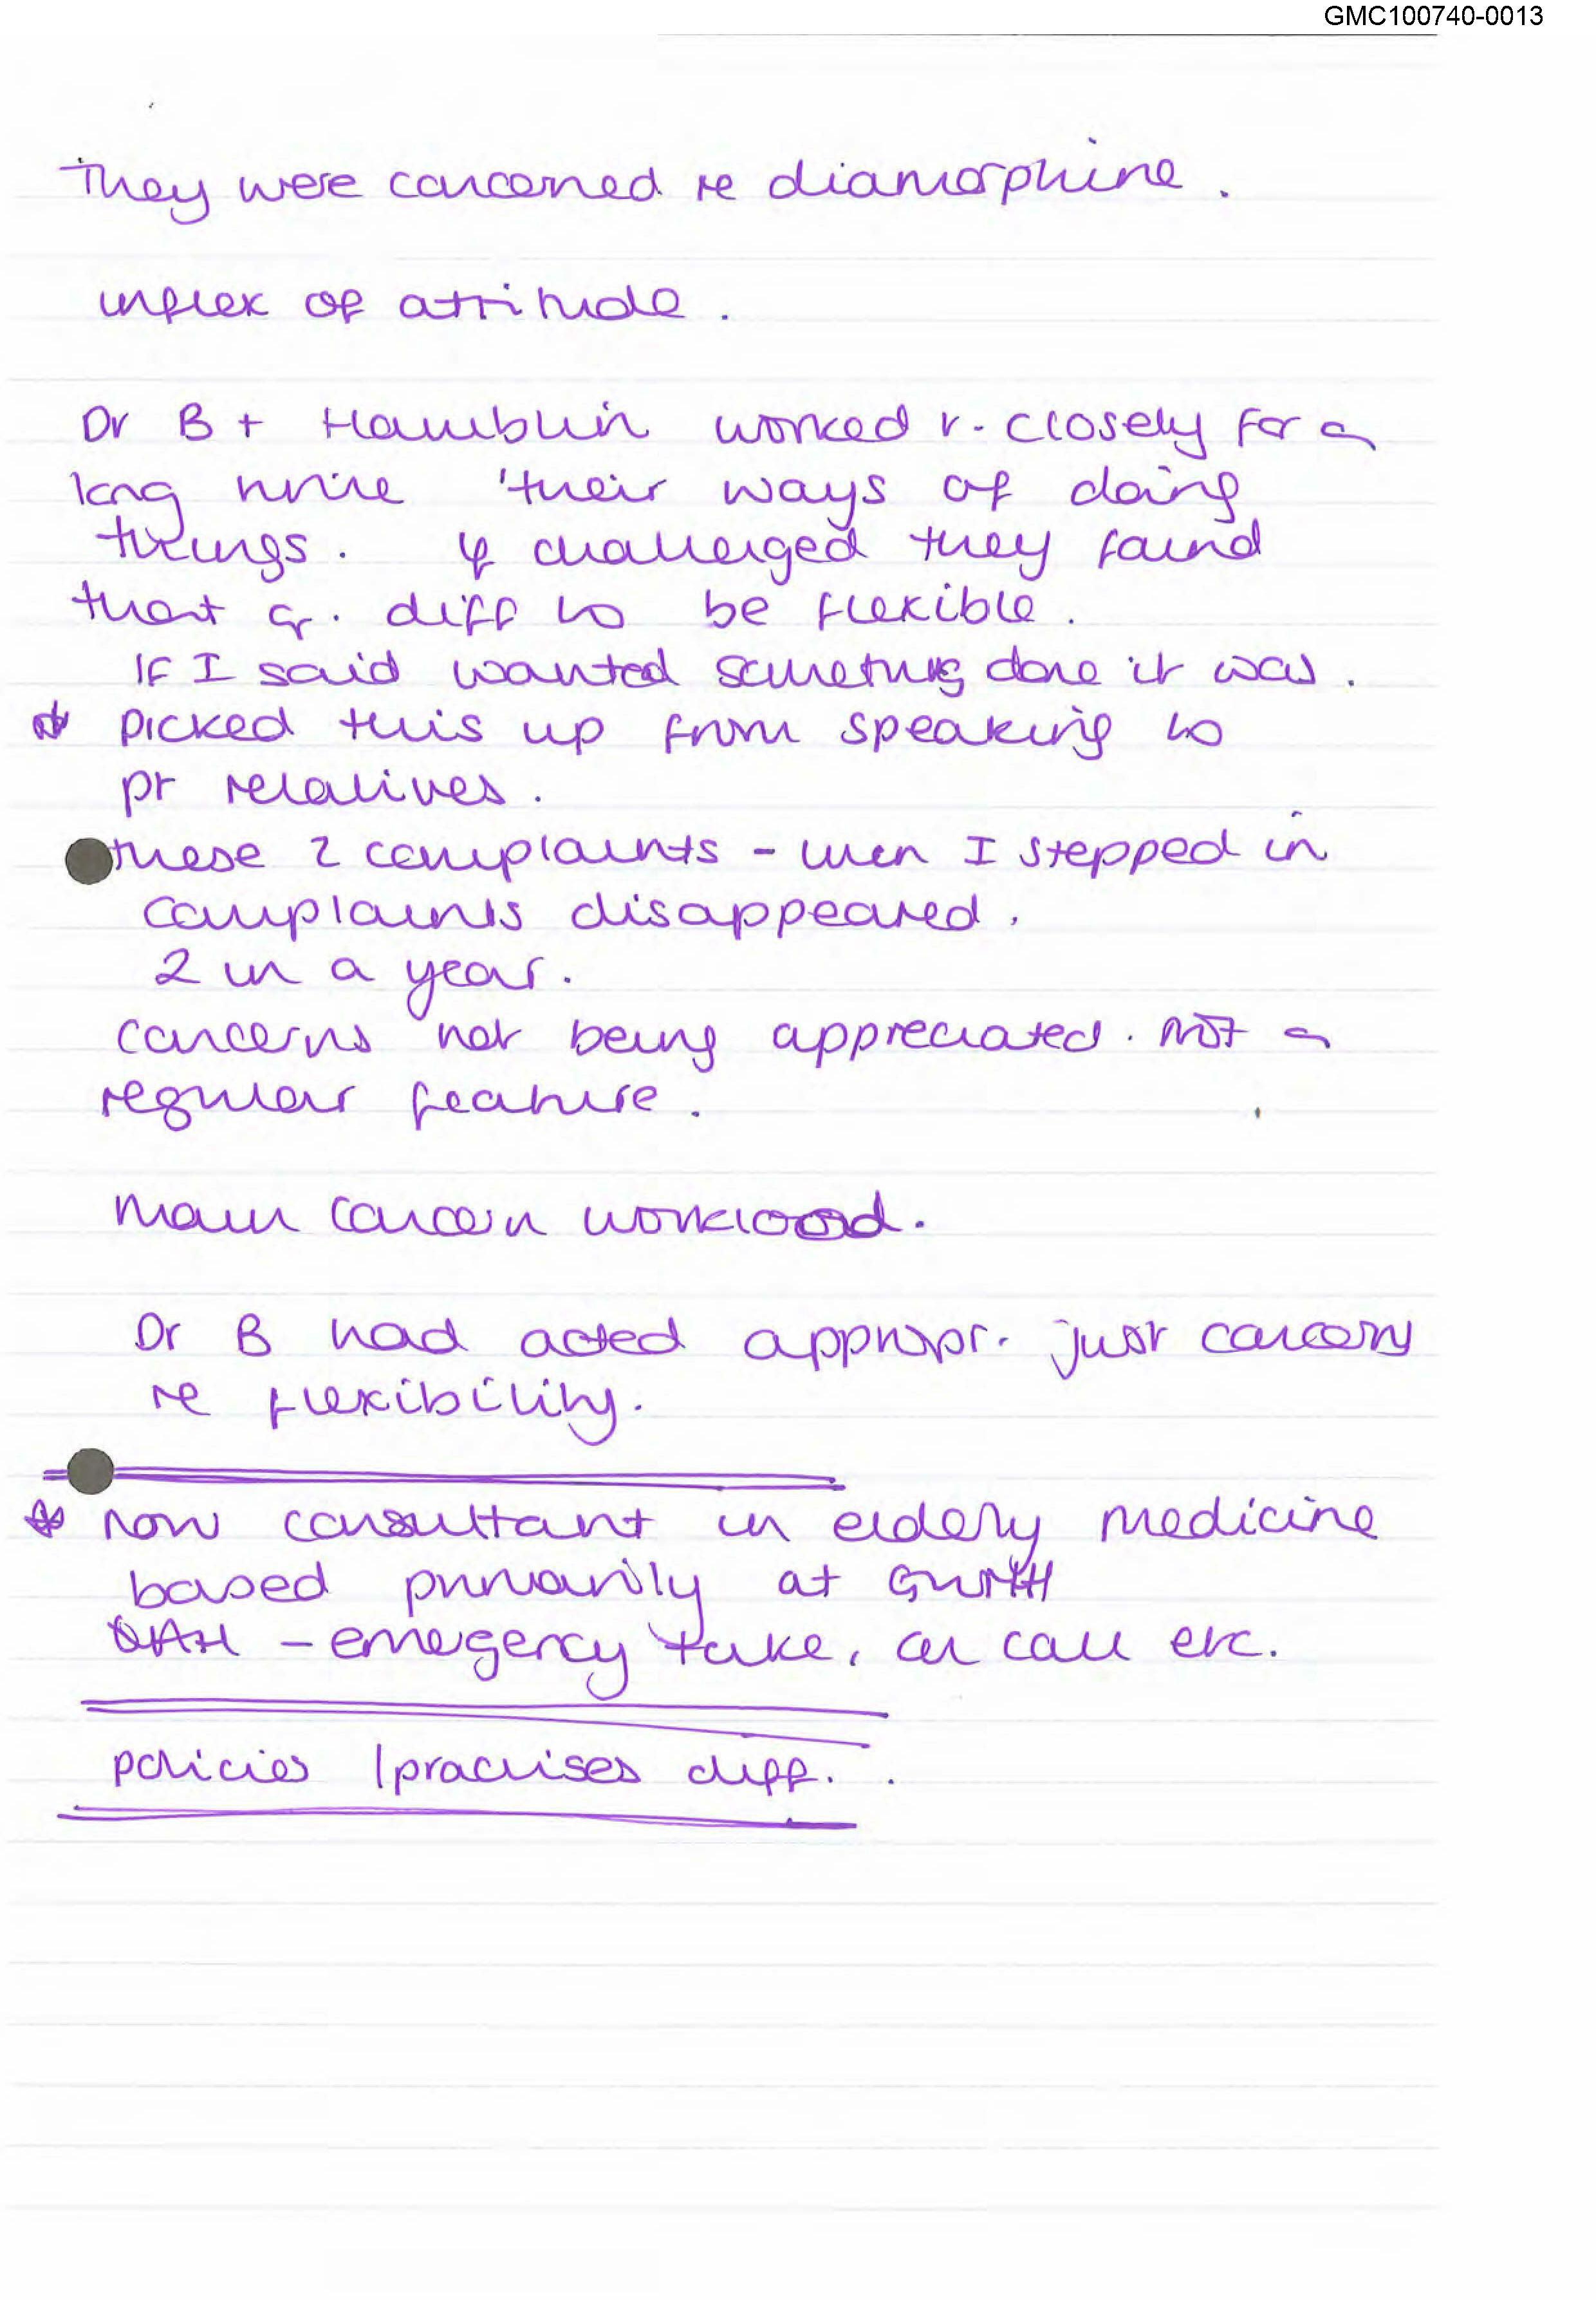 GMC100740-0013
They were concerned re diamorphine.
inflex of attitude.
Dr B + Hamblin worked v. closely for a
long time 'their ways of doing
things. If challenged they found
that q. diff to be flexible.
IF I said wanted something done it was.
* picked this up from speaking to
pt relatives.
these 2 complaints - when I stepped in
complaints disappeared.
2 in a year.
concerns not being appreciated. not a
regular feature.
Main concern workload.
Dr B had acted appropr. just concern
re flexibility.
* now consultant in elderly medicine
based primarily at GWMH
QAH - emergency take, on call etc.
policies / practises diff.